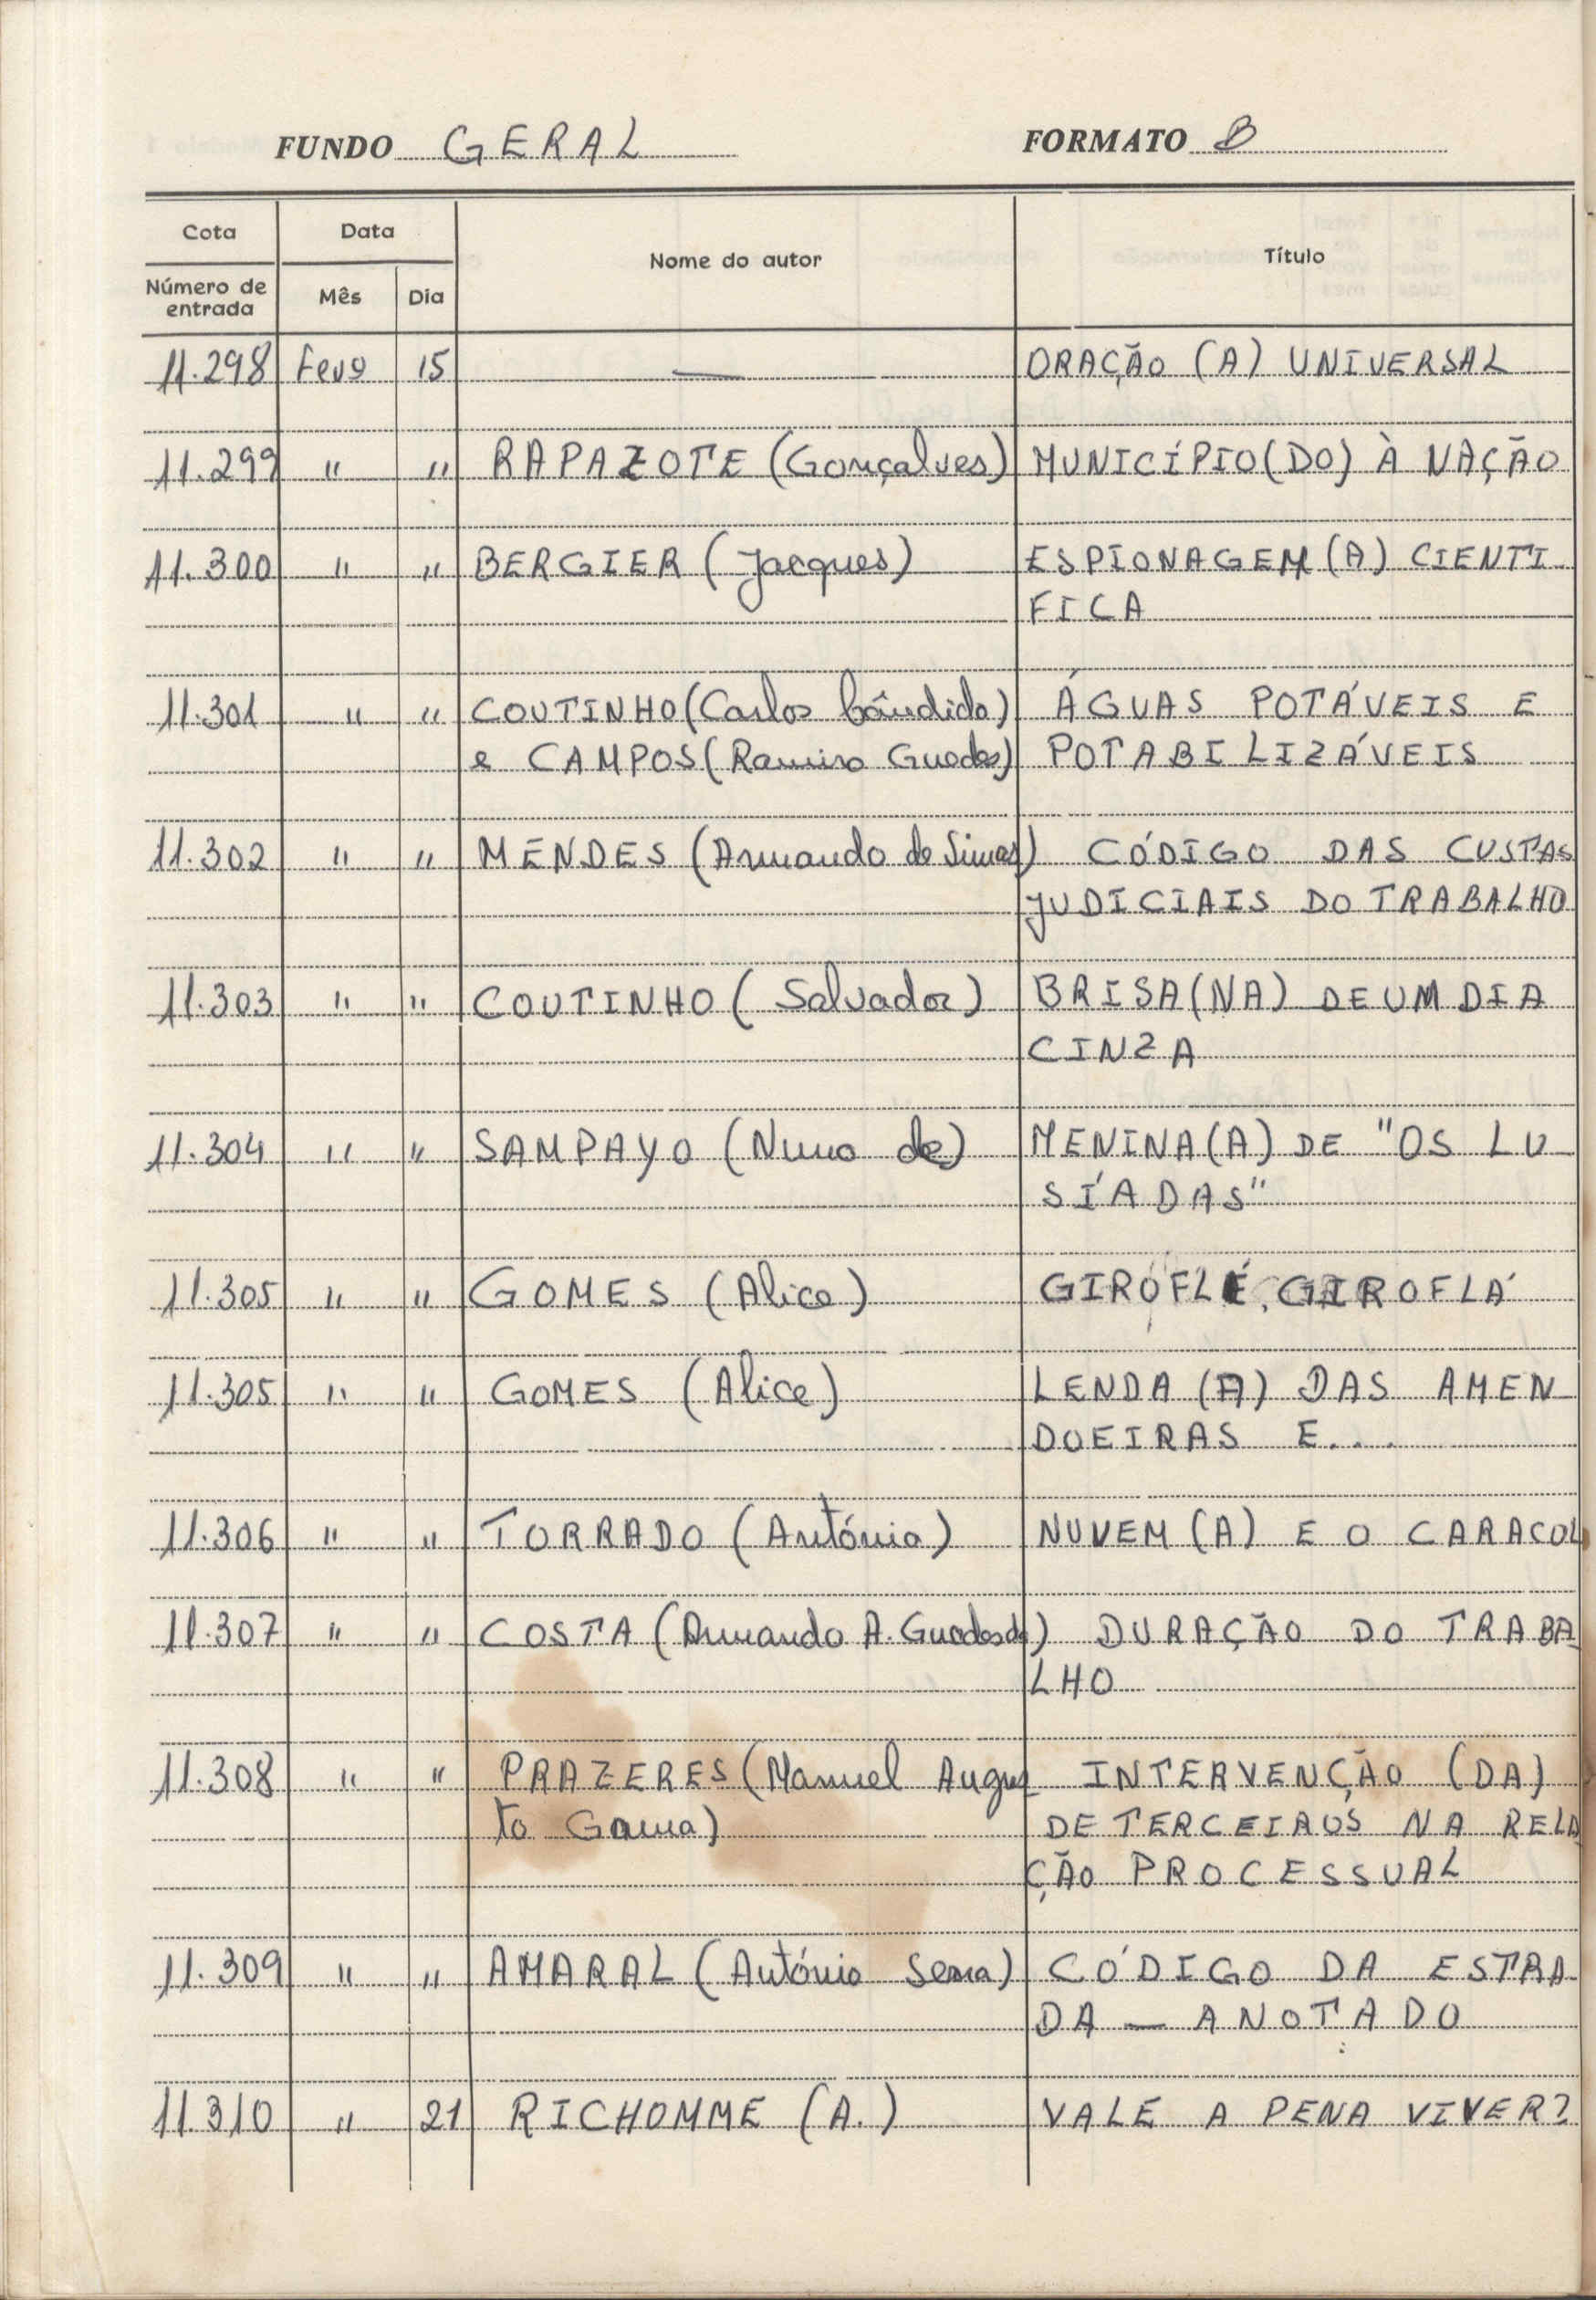 FUNDO GERAL FORMATO B
Cota Data Nome do autor Título
Número de entrada Mês Dia
11.298 Fevº 15 — ORAÇÃO (A) UNIVERSAL
11.299 " " RAPAZOTE (Gonçalves) MUNICÍPIO (DO) À NAÇÃO
11.300 " " BERGIER (Jacques) ESPIONAGEM (A) CIENTI
FICA
11.301 " " COUTINHO (Carlos Cândido) ÁGUAS POTÁVEIS E
e CAMPOS (Ramiro Guedes) POTABILIZÁVEIS
11.302 " " MENDES (Armando de Simas) CÓDIGO DAS CUSTAS
JUDICIAIS DO TRABALHO
11.303 " " COUTINHO (Salvador) BRISA (NA) DE UM DIA
CINZA
11.304 " " SAMPAYO (Nuno de) MENINA (A) DE "OS LU
SÍADAS"
11.305 " " GOMES (Alice) GIROFLÉ, GIROFLÁ
11.305 " " GOMES (Alice) LENDA (A) DAS AMEN
DOEIRAS E...
11.306 " " TORRADO (António) NUVEM (A) E O CARACOL
11.307 " " COSTA (Armando A. Guedes da) DURAÇÃO DO TRABA
LHO
11.308 " " PRAZERES (Manuel Augus INTERVENÇÃO (DA)
to Gama) DE TERCEIROS NA RELA
ÇÃO PROCESSUAL
11.309 " " AMARAL (António Serra) CÓDIGO DA ESTRA
DA — ANOTADO
11.310 " 21 RICHOMME (A.) VALE A PENA VIVER?